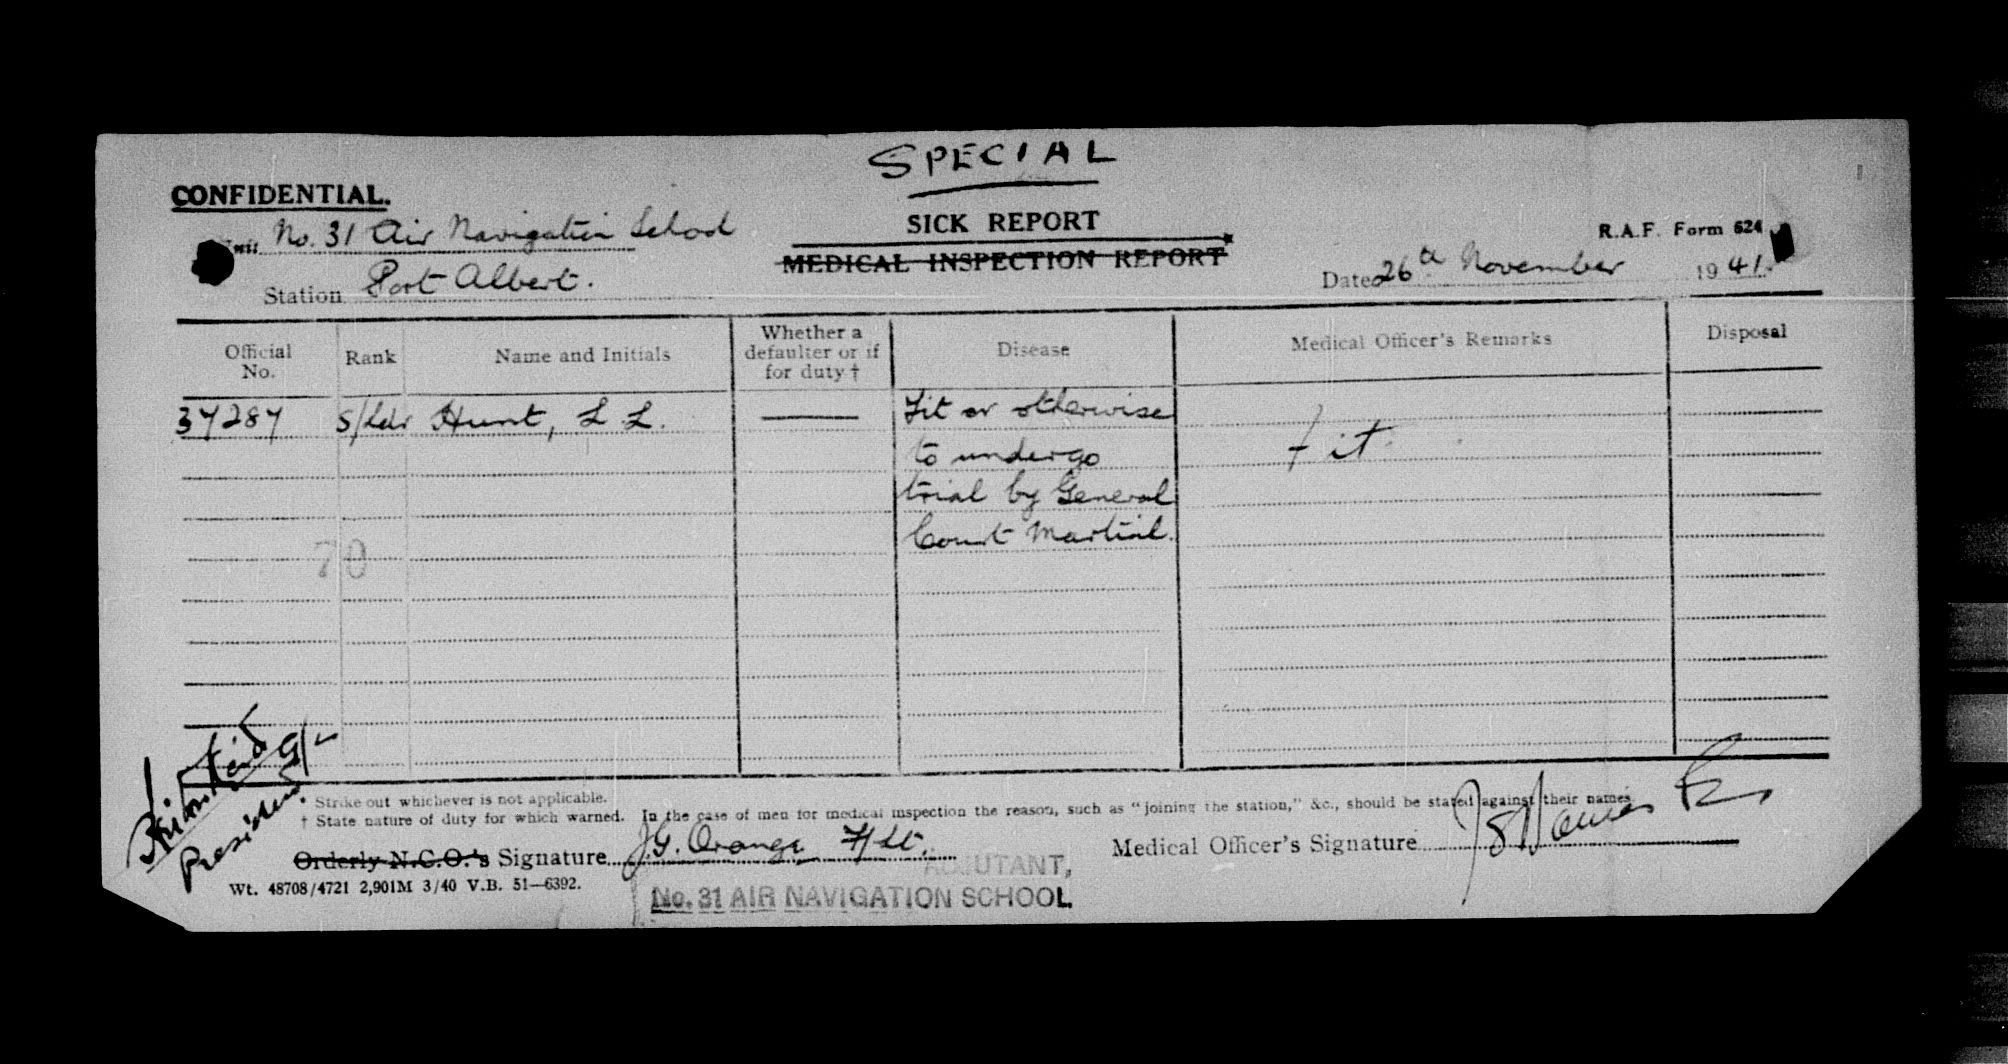 SPECIAL
CONFIDENTIAL.
Unit No. 31 Air Navigation School
SICK REPORT
MEDICAL INSPECTION REPORT*
R.A.F. Form 624
Station Port Albert.
Date 26th November 1941.
Official No. Rank Name and Initials Whether a defaulter or if for duty † Disease Medical Officer's Remarks Disposal
37287 S/Ldr Hunt, L L. — Fit or otherwise
to undergo fit
trial by General
Court Martial.
70
President
* Strike out whichever is not applicable.
† State nature of duty for which warned. In the case of men for medical inspection the reason, such as "joining the station," &c., should be stated against their names
Orderly N.C.O.'s Signature J.G. Orange F/Lt. Medical Officer's Signature
Wt. 48708/4721 2,901M 3/40 V.B. 51—6392.
ADJUTANT,
No. 31 AIR NAVIGATION SCHOOL